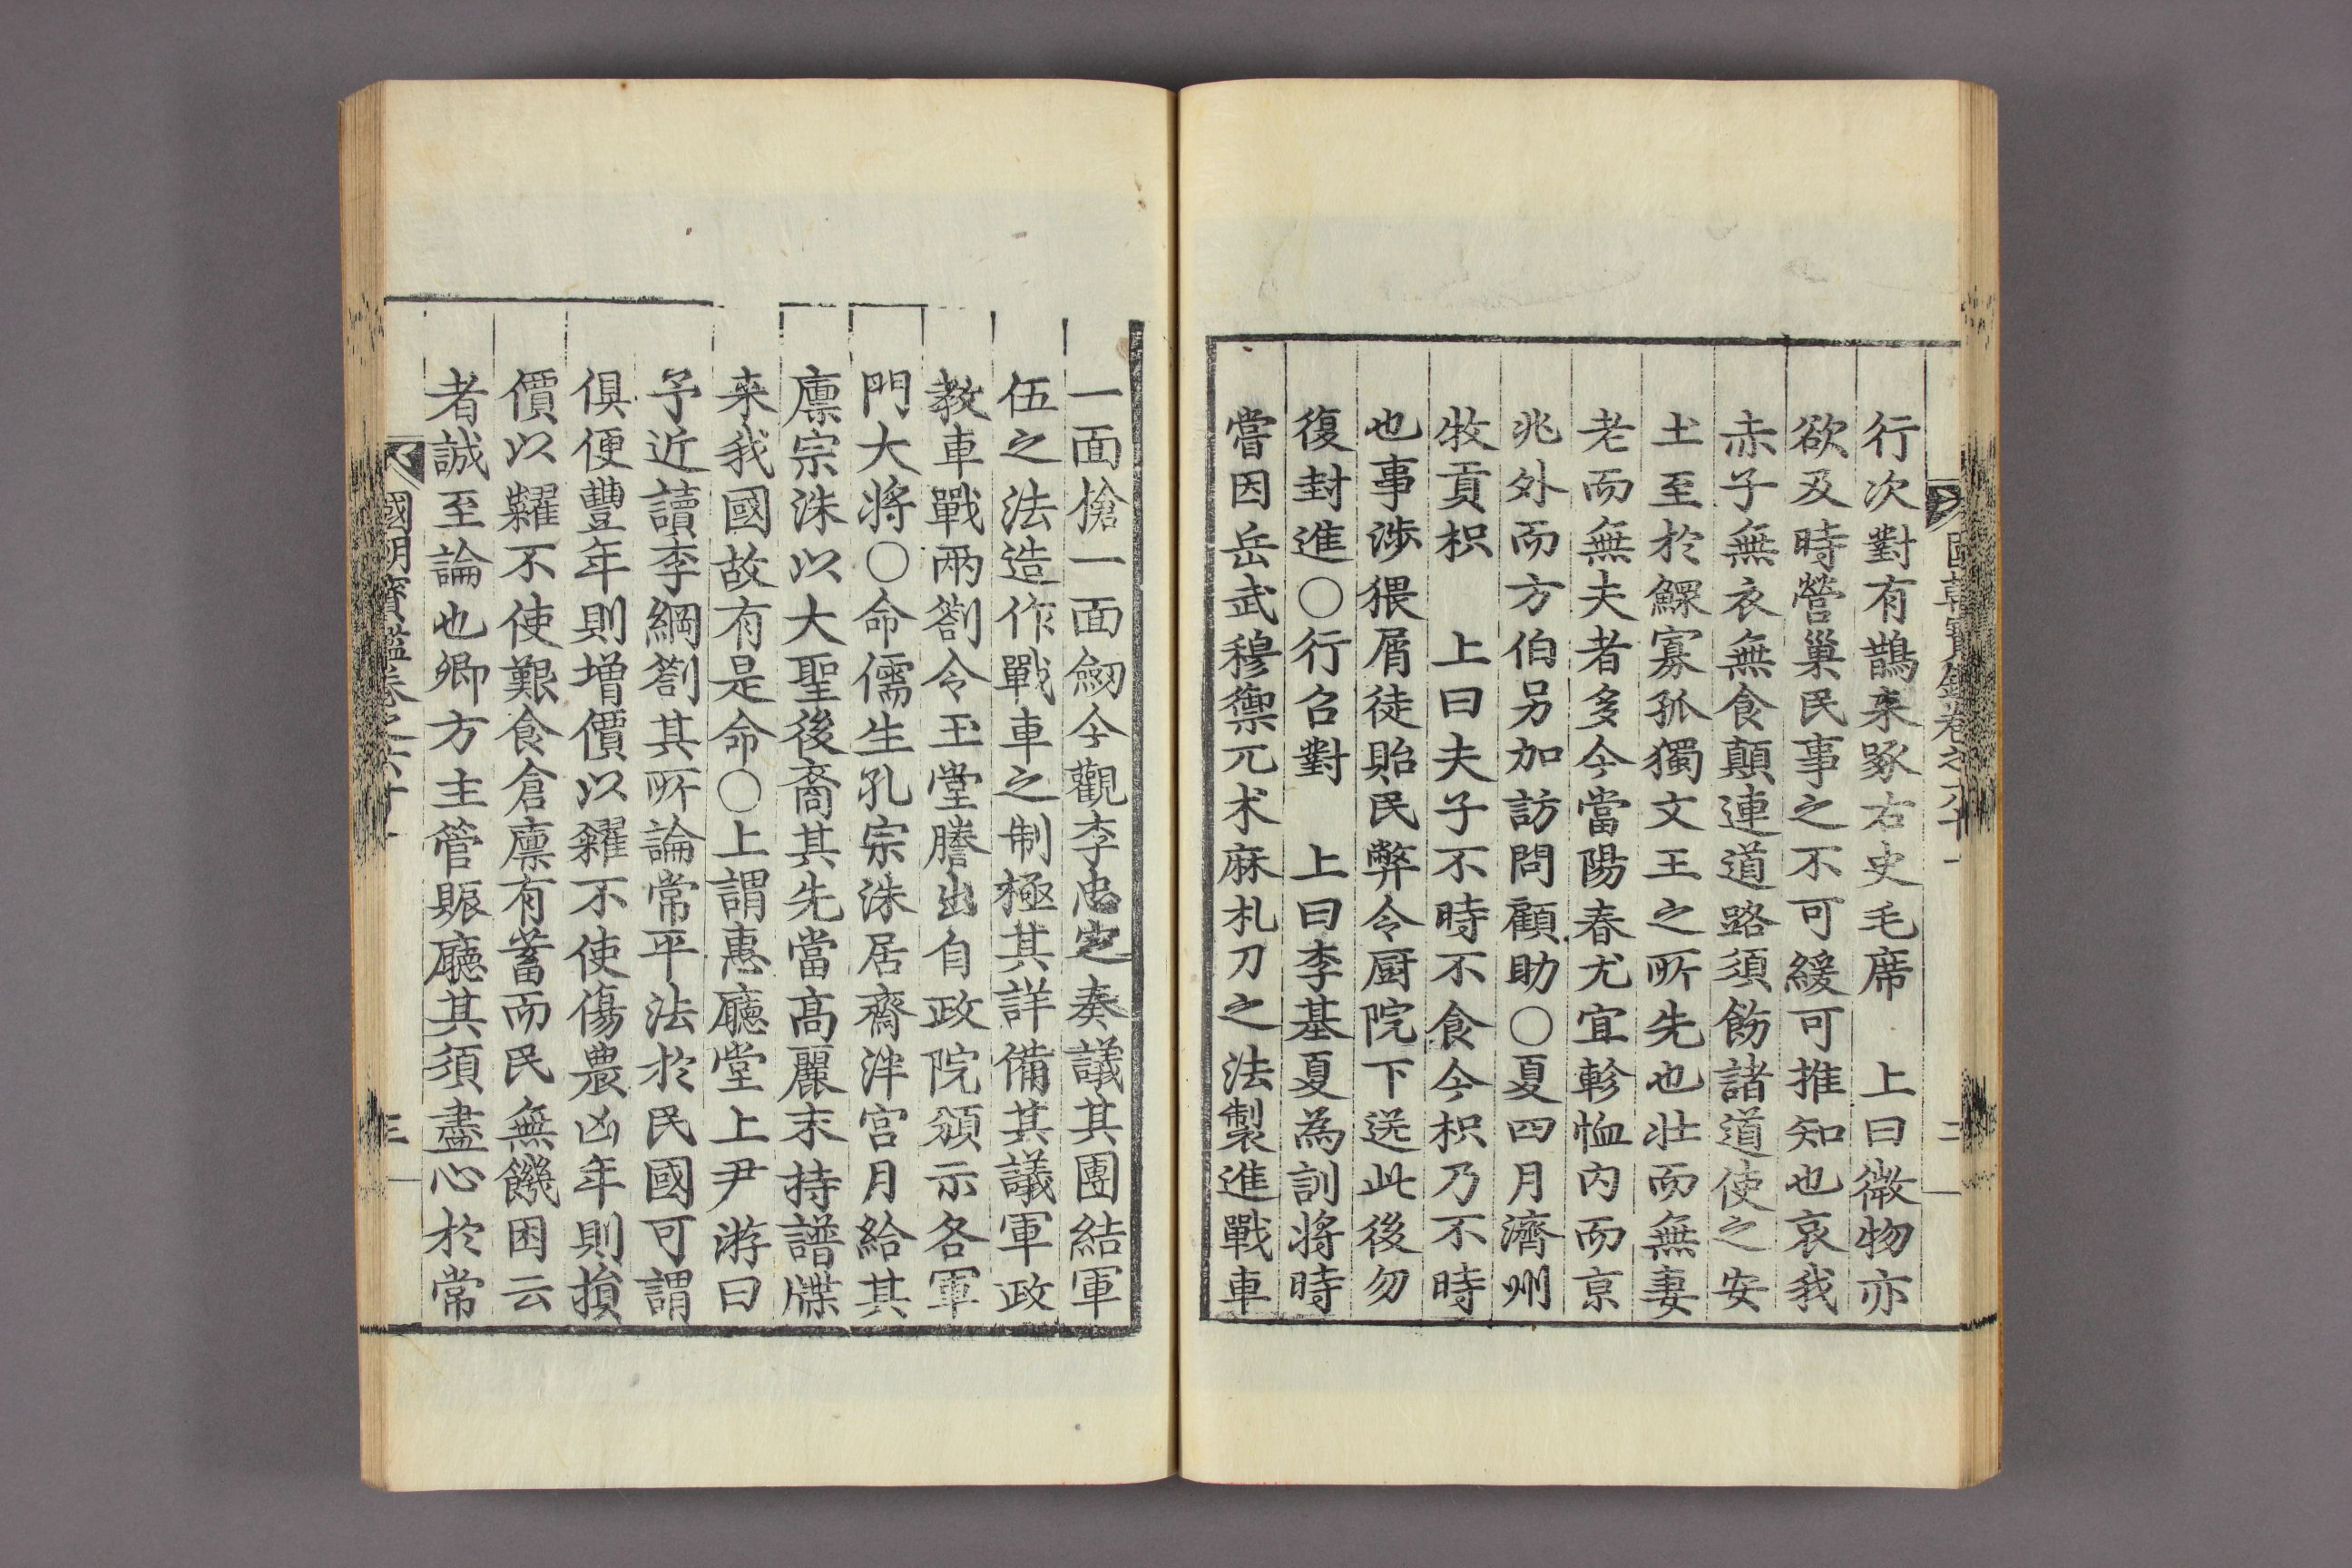 行次對有鵲来啄右史毛席　上曰微物亦
欲及時營巢民事之不可緩可推知也哀我
赤子無衣無食顛連道路須飭諸道使之安
土至於鰥寡孤獨文王之所先也壮而無妻
老而無夫者多今當陽春尤宜軫恤内而京
兆外而方伯另加訪問顧助○夏四月濟州
牧貢枳　上曰夫子不時不食今枳乃不時
也事涉猥屑徒貽民弊令厨院下送此後勿
復封進○行召對　上曰李基夏為訓將時
嘗因岳武穆禦兀朮麻札刀之法製進戰車
一面槍一面劒今觀李忠定奏議其團結軍
伍之法造作戰車之制極其詳備其議軍政
教車戰兩劄令玉堂謄出自政院頒示各軍
門大將○命儒生孔宗洙居齋泮宮月給其
廪宗洙以大聖後裔其先當高麗末持譜牒
来我國故有是命○上謂惠廳堂上尹游曰
予近讀李綱劄其所論常平法於民國可謂
俱便豐年則増價以糴不使傷農凶年則損
價以糶不使艱食倉廪有蓄而民無饑困云
者誠至論也卿方主管賑廳其須盡心於常
國朝寶鑑卷之六十一
三
國朝寶鑑卷之六十一
二